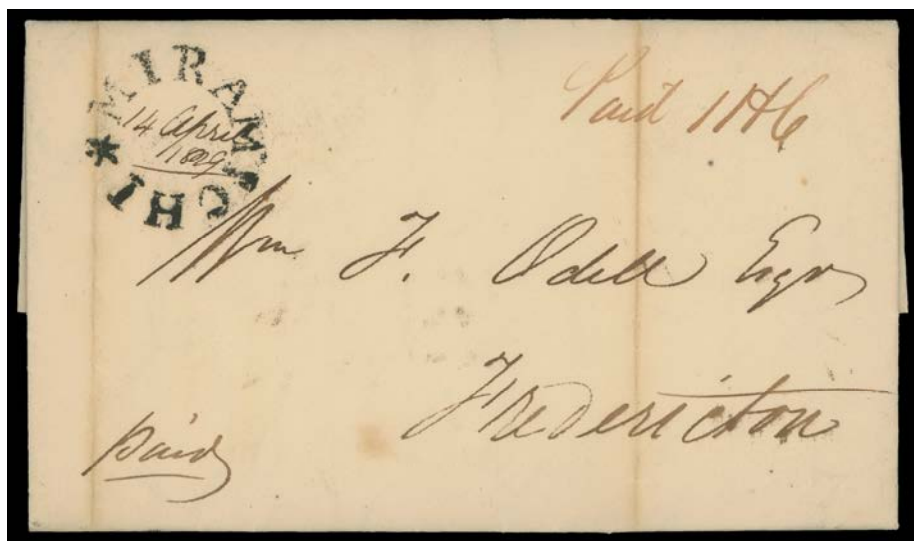 MIRAMICHI *
14 April
1829
Paid 1N6
Wm F. Odell Esqr
Fredericton
paid